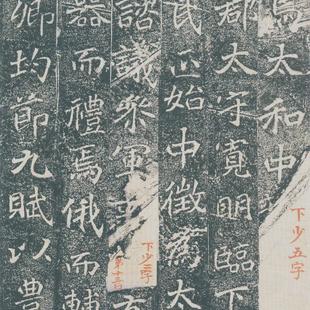 太和中
下少五字
郡太守寬明臨下
民正始中徵為太
諮議叅軍事
下少三字
第十三行
器而禮焉俄而輔
卿均節九賦以豊